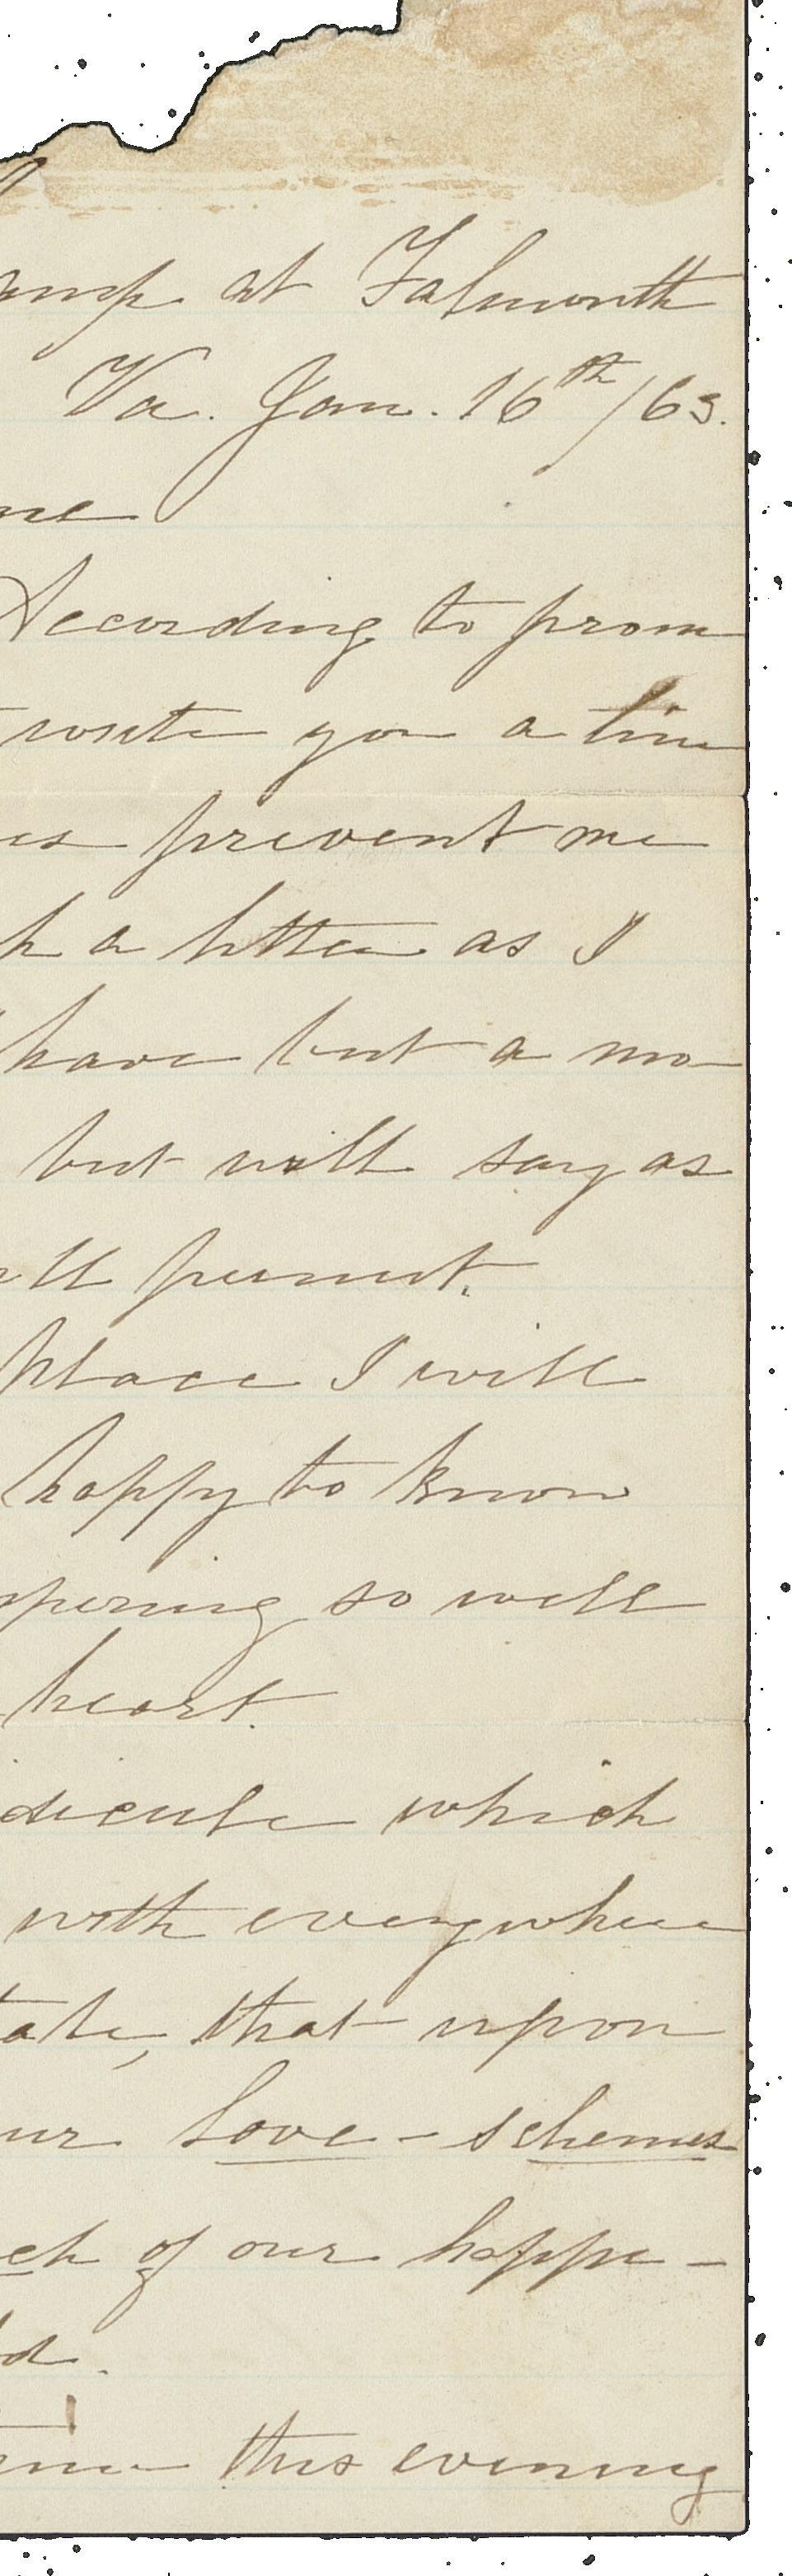 amp at Falmouth
Va. Jan. 16th/63.
According to prom
write you a line
es prevent me
h a letter as I
have but a mo
but will say as
ll permit.
place I will
happy to know
spering so well
heart.
dicule which
with everywhere
tate, that upon
ur love-schemes
ch of our happi-
d.
this evening